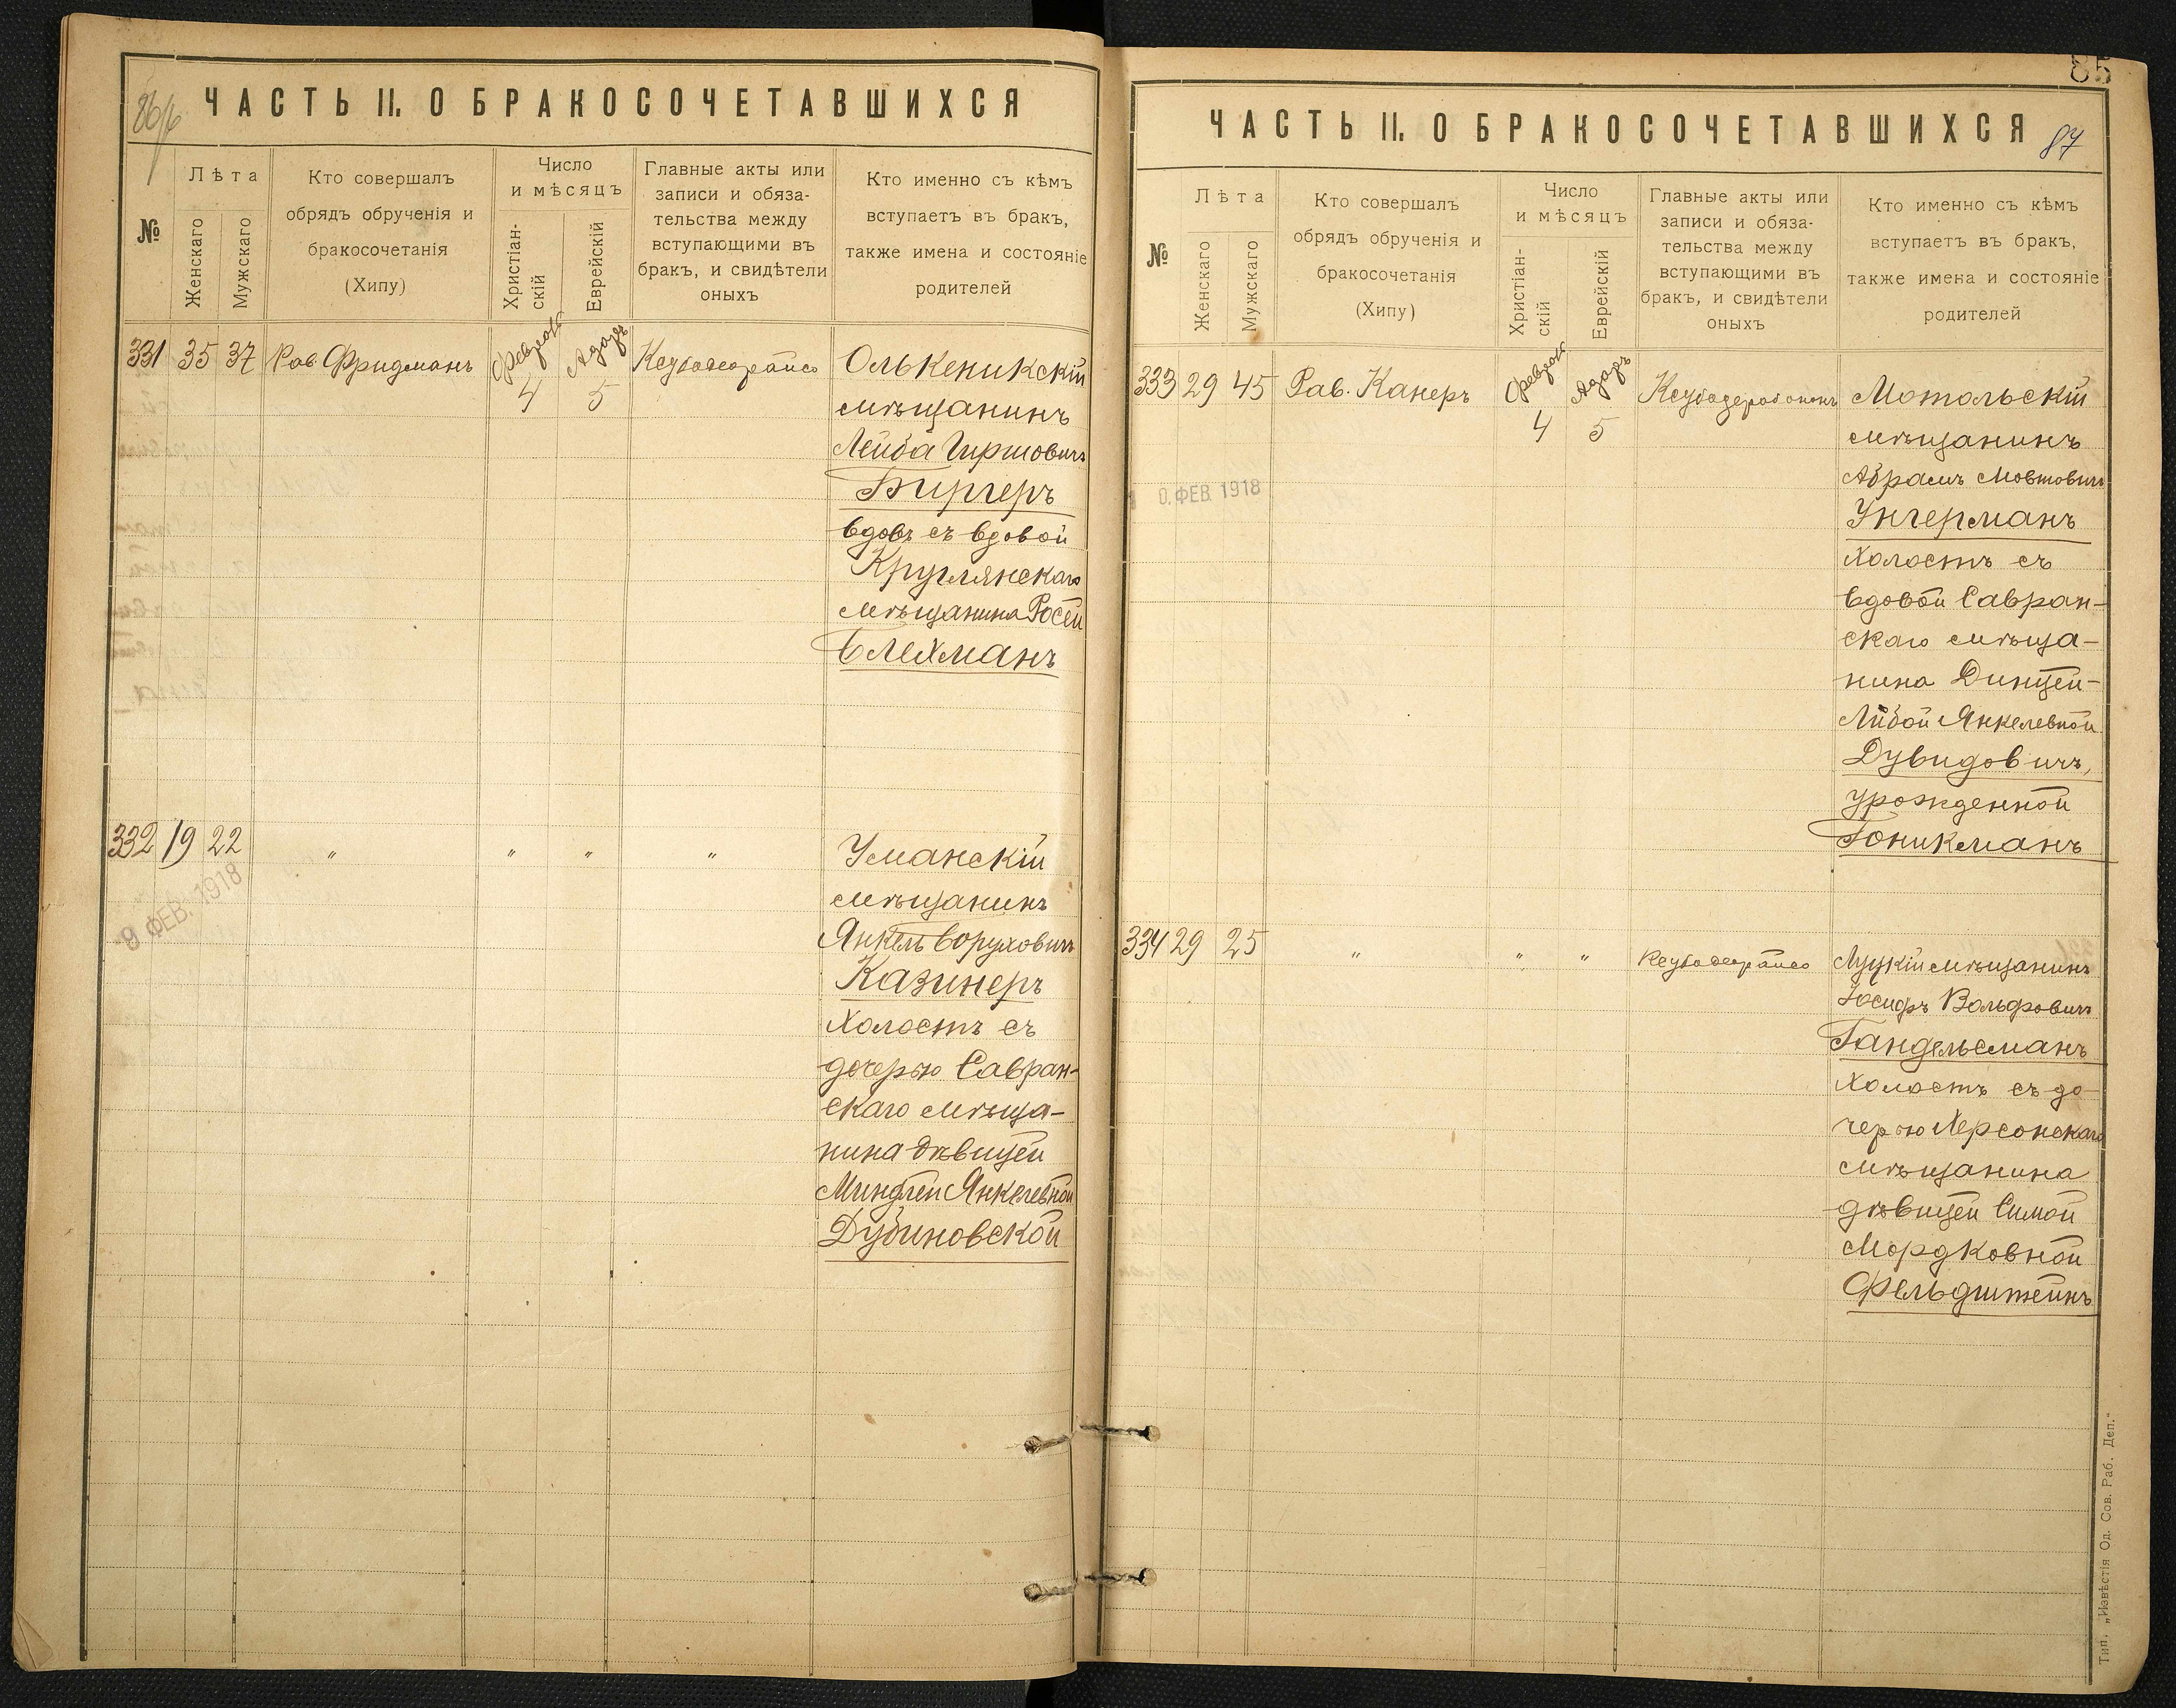 86/б
ЧАСТЬ II. О БРАКОСОЧЕТАВШИХСЯ
№
Лѣта
Женскаго
Мужскаго
Кто совершалъ
обрядъ обрученія и
бракосочетанія
(Хипу)
Число
и мѣсяцъ
Христіан-
скій
Еврейскій
Главные акты или
записи и обяза-
тельства между
вступающими въ
бракъ, и свидѣтели
оныхъ
Кто именно съ кѣмъ
вступаетъ въ бракъ,
также имена и состояніе
родителей
331 35 37 Рав. Фридманъ Февраль 4 Адаръ 5
Олькеникскій
мѣщанинъ
Лейба Гиршовичъ
Биргеръ
вдовъ съ вдовой
Круглянскаго
мѣщанина Росей
Блехманъ
332 19 22 " " " "
9 ФЕВ. 1918
Уманскій
мѣщанинъ
Янкель Борухович
Казинеръ
Холостъ съ
дочерью Савран-
скаго мѣща-
нина дѣвицей
Миндлей Янкелевной
Дубиновской
85
ЧАСТЬ II. О БРАКОСОЧЕТАВШИХСЯ
87
№
Лѣта
Женскаго
Мужскаго
Кто совершалъ
обрядъ обрученія и
бракосочетанія
(Хипу)
Число
и мѣсяцъ
Христіан-
скій
Еврейскій
Главные акты или
записи и обяза-
тельства между
вступающими въ
бракъ, и свидѣтели
оныхъ
Кто именно съ кѣмъ
вступаетъ въ бракъ,
также имена и состояніе
родителей
333 29 45 Рав. Канеръ Февраль 4 Адаръ 5
0. ФЕВ. 1918
Мотольскій
мѣщанинъ
Абрамъ Мовшовичъ
Унгерманъ
Холостъ съ
вдовой Савран-
скаго мѣща-
нина Динцей-
Либой Янкелевной
Дувидовичъ,
урожденной
Гоникманъ
334 29 25 " " "
Луцкій мѣщанинъ
Іосифъ Вольфовичъ
Гандельсманъ
Холостъ съ до-
черью Херсонскаго
мѣщанина
дѣвицей Симой
Мордковной
Фельдштейнъ
Тип. „Извѣстія Од. Сов. Раб. Деп."